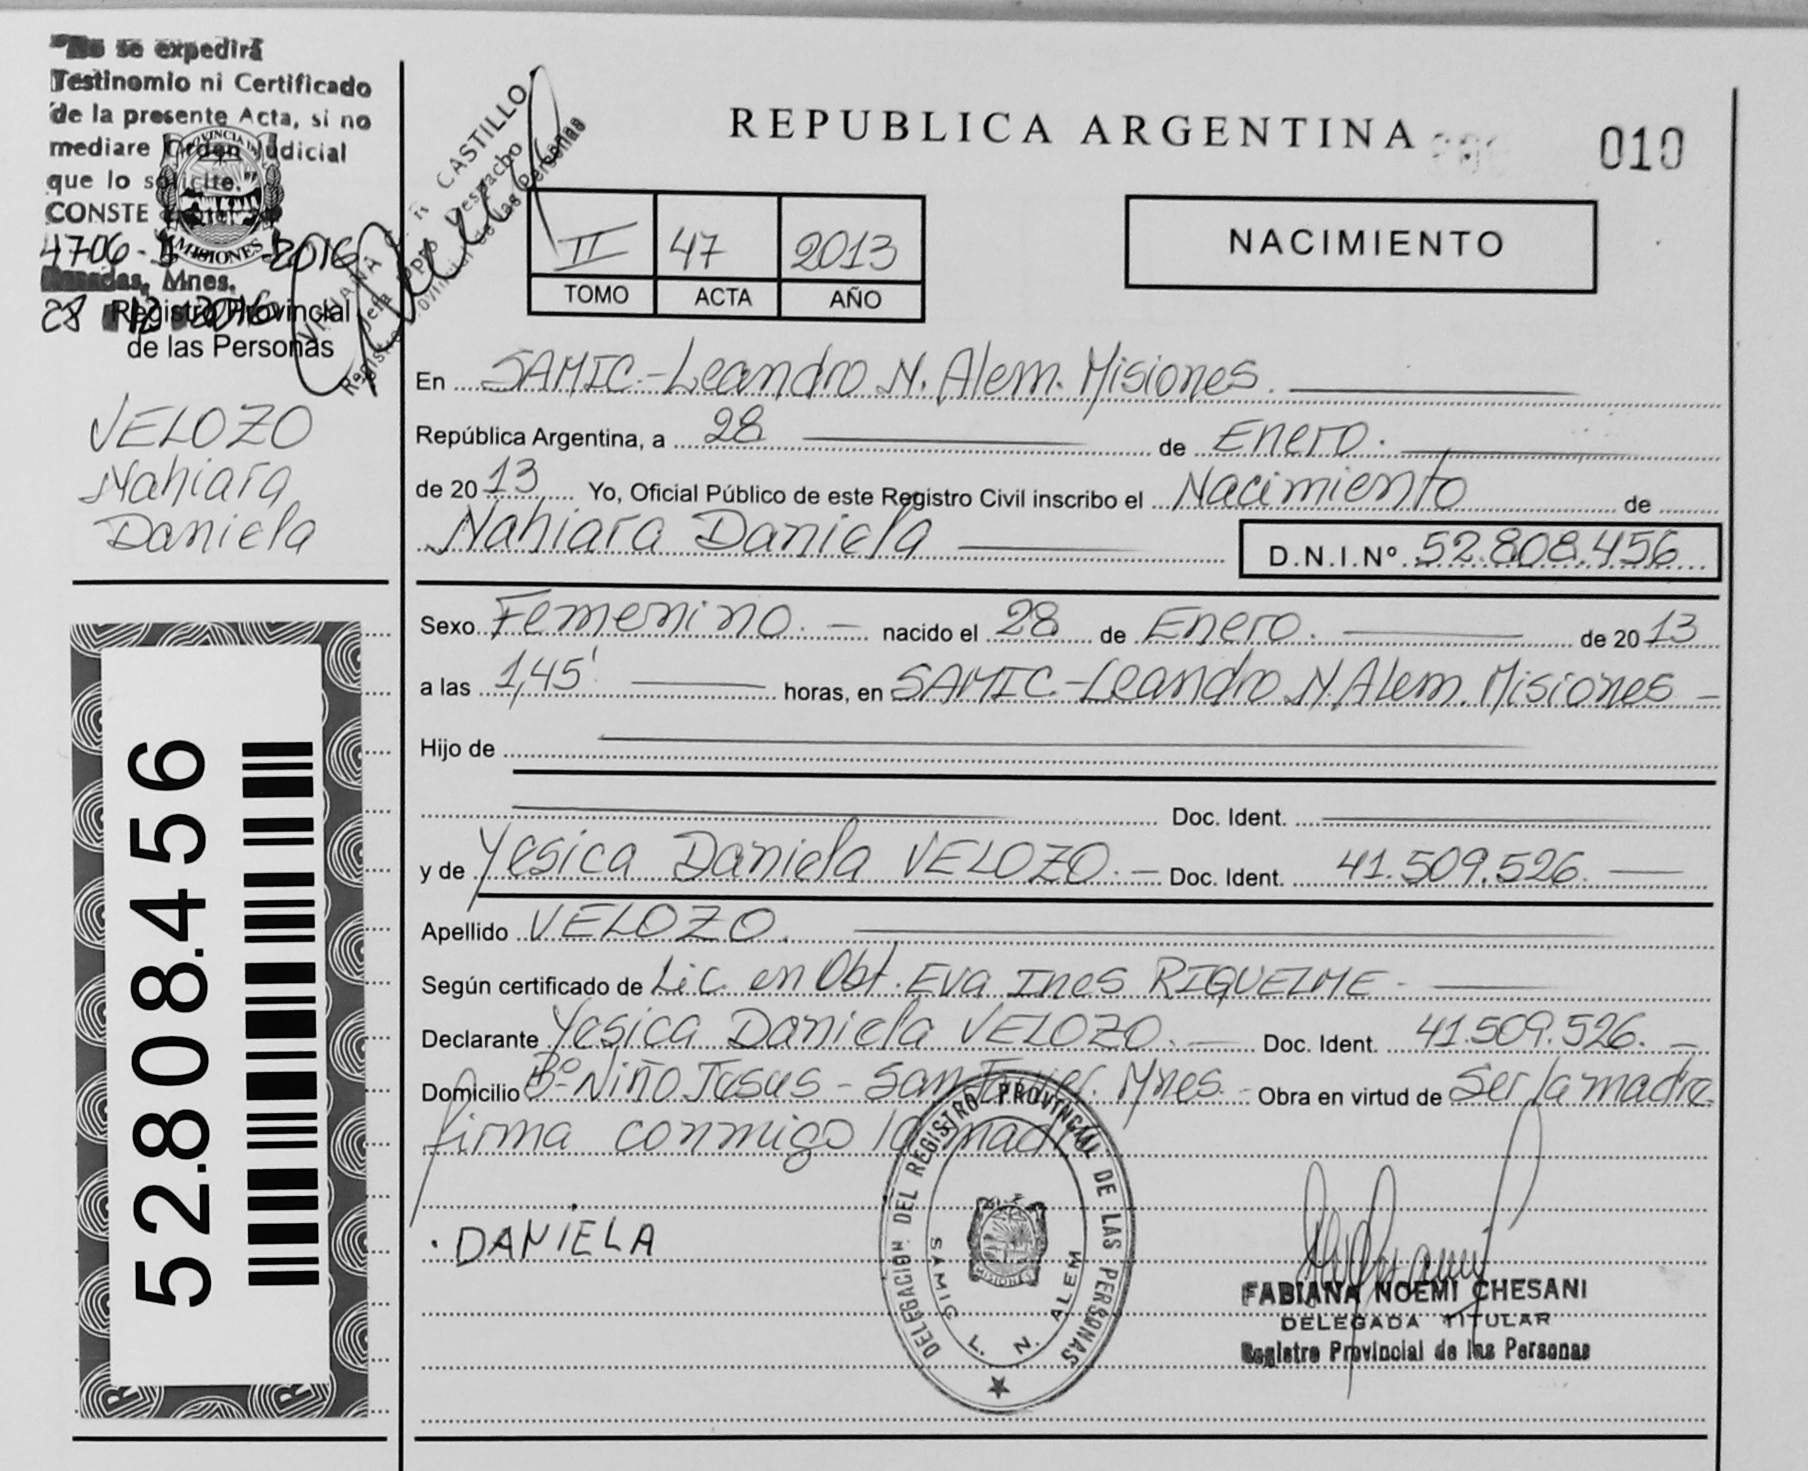 "No se expedirá
Testinomio ni Certificado
de la presente Acta, si no
mediare Orden Judicial
que lo solicite."
CONSTE
4706- 2016
Posadas, Mnes.
28 12 2016
PROVINCIA
MISIONES
Registro Provincial
de las Personas
VELOZO
Nahiara
Daniela
52.808.456
CASTILLO
Despacho
Registro Provincial de las Personas
REPUBLICA ARGENTINA
010
II 47 2013
TOMO ACTA AÑO
NACIMIENTO
En SAMIC-Leandro N. Alem. Misiones.
República Argentina, a 28 de Enero.
de 2013 Yo, Oficial Público de este Registro Civil inscribo el Nacimiento de
Nahiara Daniela D.N.I.Nº 52.808.456
Sexo Femenino. nacido el 28 de Enero. de 2013
a las 1,45' horas, en SAMIC-Leandro N. Alem. Misiones
Hijo de
Doc. Ident.
y de Yesica Daniela VELOZO. Doc. Ident. 41.509.526.
Apellido VELOZO.
Según certificado de Lic. en Obt. Eva Ines RIQUELME
Declarante Yesica Daniela VELOZO. Doc. Ident. 41.509.526.
Domicilio Bº Niño Jesus - San Javier. Mnes. - Obra en virtud de Ser la madre
firma conmigo la madre
DANIELA
DELEGACION DEL REGISTRO PROVINCIAL DE LAS PERSONAS
SAMIC L. N. ALEM
MISIONES
FABIANA NOEMI CHESANI
DELEGADA TITULAR
Registro Provincial de las Personas